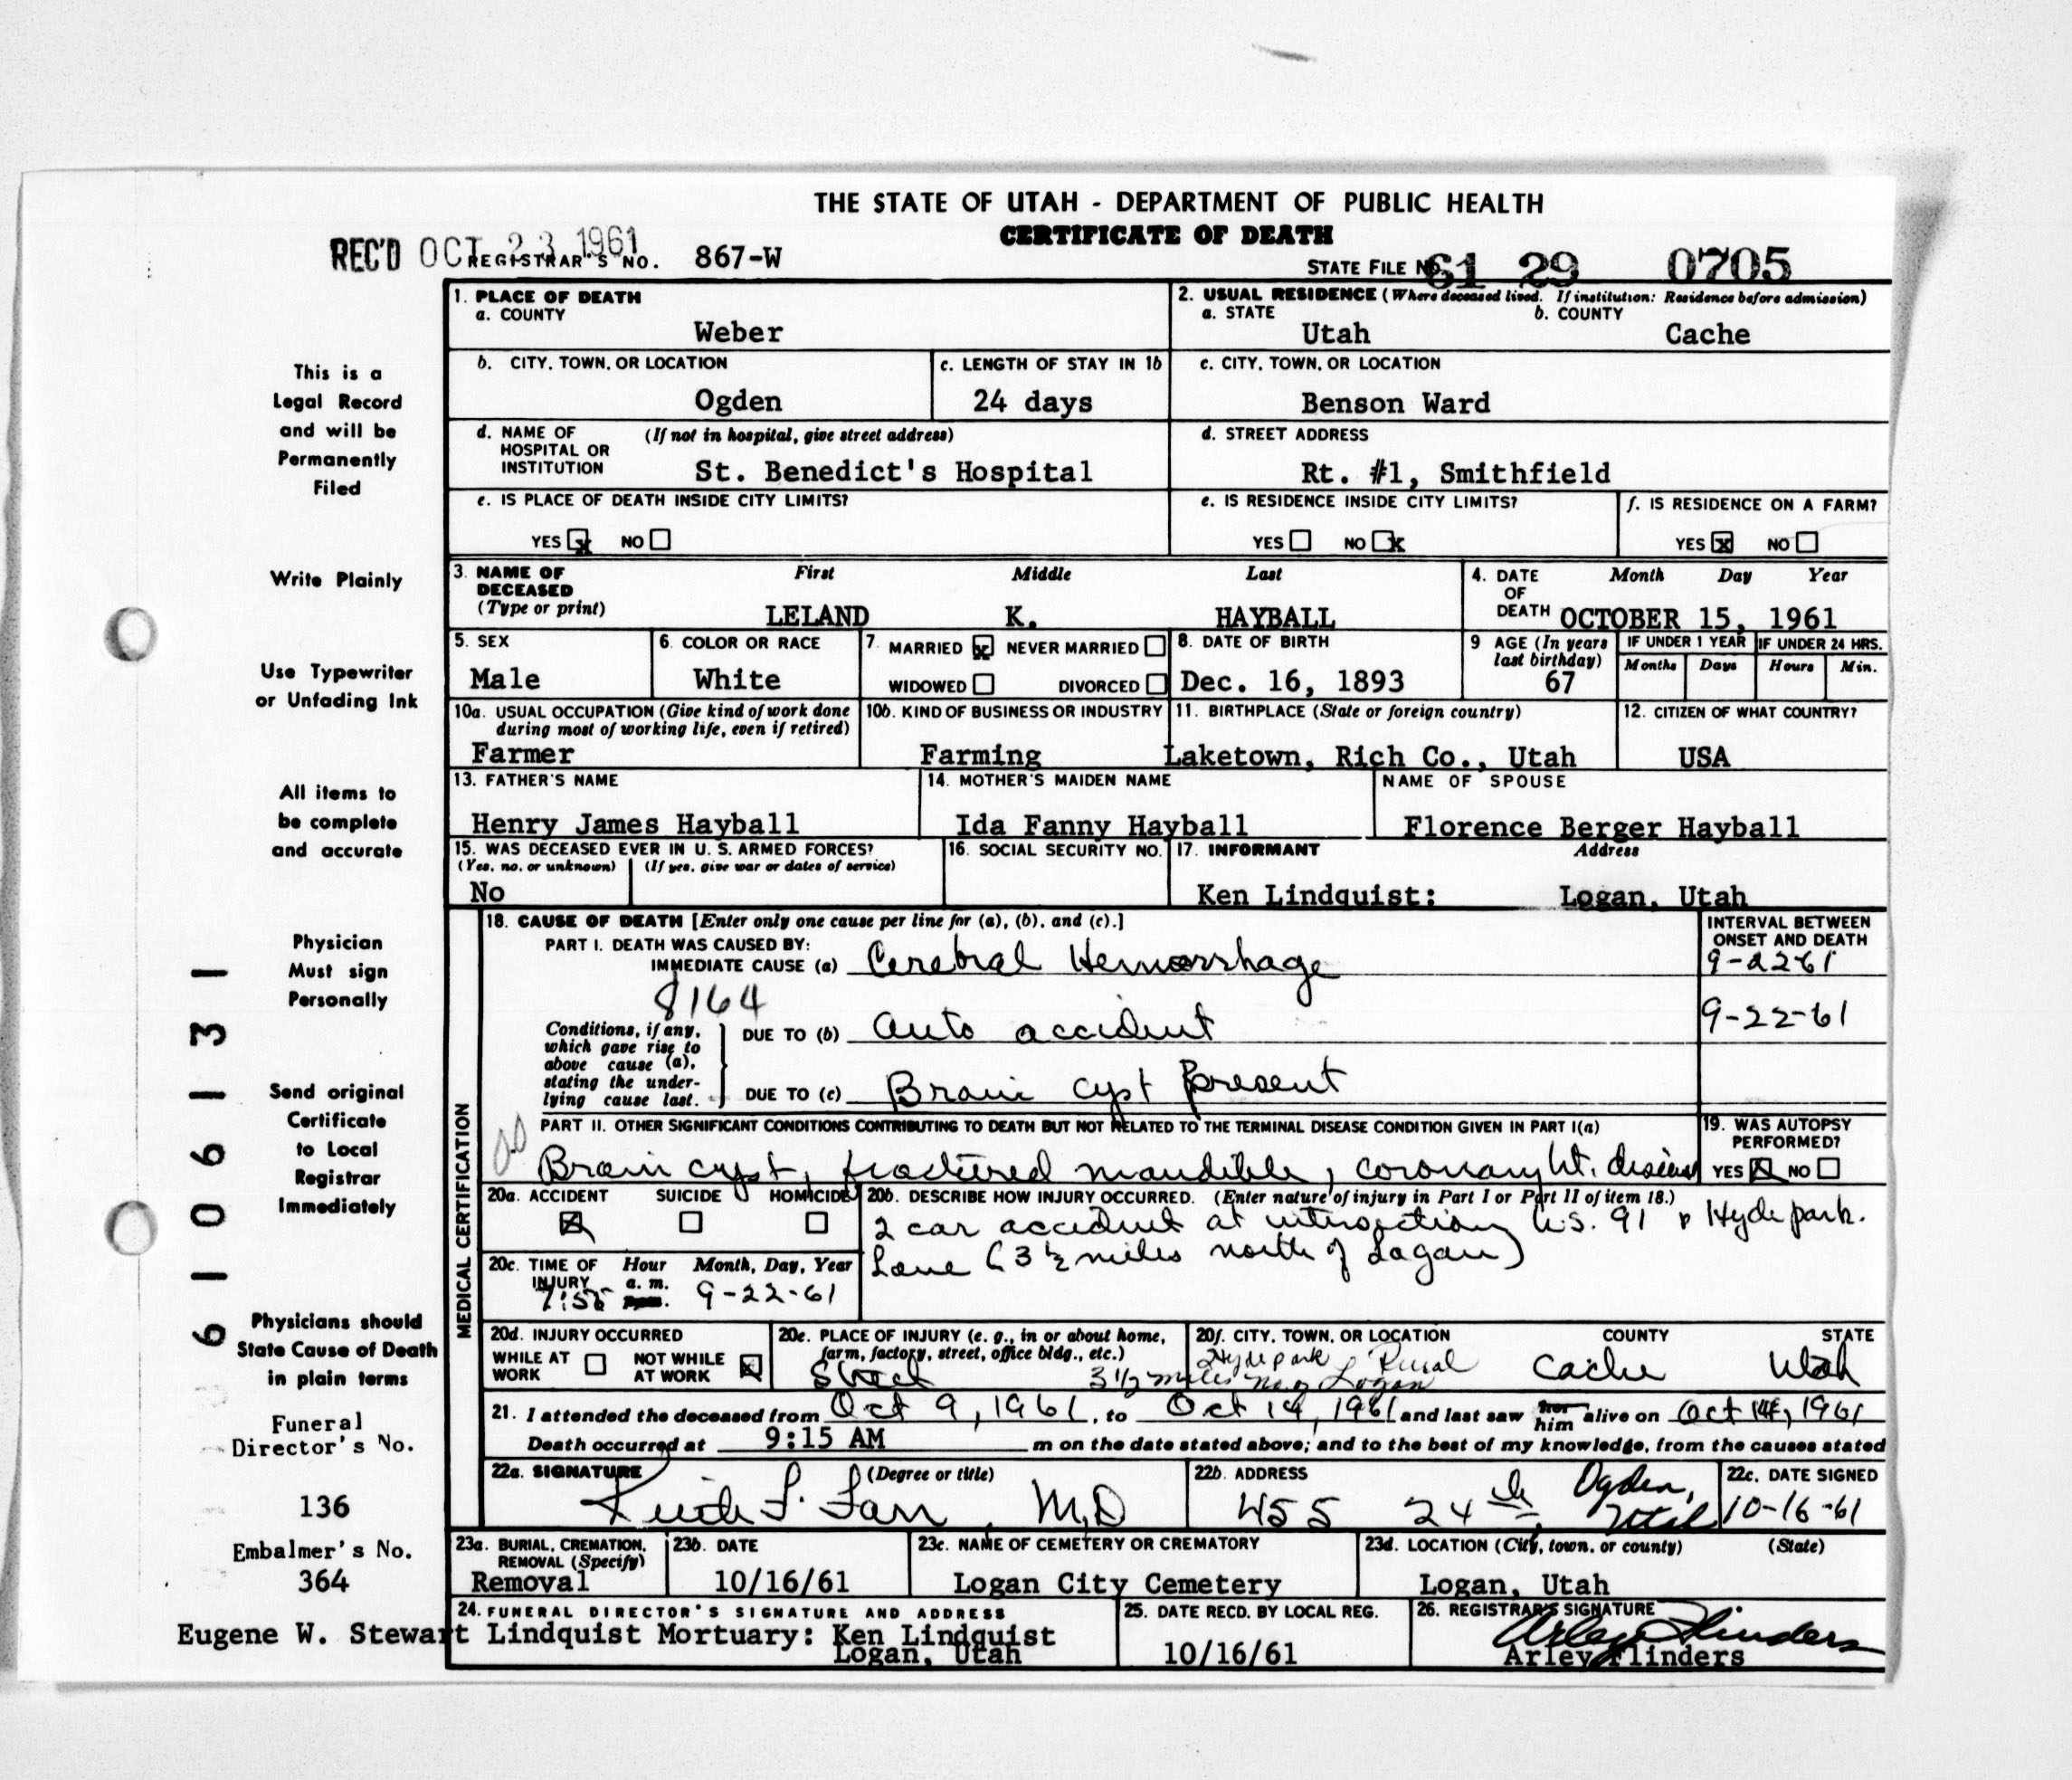 THE STATE OF UTAH - DEPARTMENT OF PUBLIC HEALTH
CERTIFICATE OF DEATH
REC'D OCT 23 1961 REGISTRAR'S NO. 867-W
STATE FILE NO. 61 29 0705
1. PLACE OF DEATH
a. COUNTY
Weber
2. USUAL RESIDENCE (Where deceased lived. If institution: Residence before admission)
a. STATE b. COUNTY
Utah Cache
b. CITY, TOWN, OR LOCATION
Ogden
c. LENGTH OF STAY IN 1b
24 days
c. CITY, TOWN, OR LOCATION
Benson Ward
d. NAME OF HOSPITAL OR INSTITUTION (If not in hospital, give street address)
St. Benedict's Hospital
d. STREET ADDRESS
Rt. #1, Smithfield
e. IS PLACE OF DEATH INSIDE CITY LIMITS?
YES x NO
e. IS RESIDENCE INSIDE CITY LIMITS?
YES NO x
f. IS RESIDENCE ON A FARM?
YES x NO
3. NAME OF DECEASED (Type or print)
First Middle Last
LELAND K. HAYBALL
4. DATE OF DEATH Month Day Year
OCTOBER 15, 1961
5. SEX
Male
6. COLOR OR RACE
White
7. MARRIED x NEVER MARRIED
WIDOWED DIVORCED
8. DATE OF BIRTH
Dec. 16, 1893
9 AGE (In years last birthday)
67
IF UNDER 1 YEAR IF UNDER 24 HRS.
Months Days Hours Min.
10a. USUAL OCCUPATION (Give kind of work done during most of working life, even if retired)
Farmer
10b. KIND OF BUSINESS OR INDUSTRY
Farming
11. BIRTHPLACE (State or foreign country)
Laketown, Rich Co., Utah
12. CITIZEN OF WHAT COUNTRY?
USA
13. FATHER'S NAME
Henry James Hayball
14. MOTHER'S MAIDEN NAME
Ida Fanny Hayball
NAME OF SPOUSE
Florence Berger Hayball
15. WAS DECEASED EVER IN U. S. ARMED FORCES?
(Yes, no, or unknown) (If yes, give war or dates of service)
No
16. SOCIAL SECURITY NO.
17. INFORMANT Address
Ken Lindquist: Logan, Utah
MEDICAL CERTIFICATION
18. CAUSE OF DEATH [Enter only one cause per line for (a), (b), and (c).]
INTERVAL BETWEEN ONSET AND DEATH
PART I. DEATH WAS CAUSED BY:
IMMEDIATE CAUSE (a) Cerebral Hemorrhage 9-22-61
8164
Conditions, if any, which gave rise to above cause (a), stating the underlying cause last.
DUE TO (b) Auto accident 9-22-61
DUE TO (c) Brain cyst present
PART II. OTHER SIGNIFICANT CONDITIONS CONTRIBUTING TO DEATH BUT NOT RELATED TO THE TERMINAL DISEASE CONDITION GIVEN IN PART I(a)
Brain cyst, fractured mandible, coronary ht. disease
19. WAS AUTOPSY PERFORMED?
YES x NO
20a. ACCIDENT SUICIDE HOMICIDE
x
20b. DESCRIBE HOW INJURY OCCURRED. (Enter nature of injury in Part I or Part II of item 18.)
2 car accident at intersection U.S. 91 & Hyde park.
Lane (3 1/2 miles north of Logan)
20c. TIME OF INJURY Hour Month, Day, Year
7:55 a. m. p.m. 9-22-61
20d. INJURY OCCURRED
WHILE AT WORK NOT WHILE AT WORK x
20e. PLACE OF INJURY (e. g., in or about home, farm, factory, street, office bldg., etc.)
Street
20f. CITY, TOWN, OR LOCATION COUNTY STATE
Hyde park Rural
3 1/2 miles no. of Logan
Cache Utah
21. I attended the deceased from Oct 9, 1961, to Oct 14, 1961 and last saw her him alive on Oct 14, 1961
Death occurred at 9:15 AM m on the date stated above; and to the best of my knowledge, from the causes stated
22a. SIGNATURE (Degree or title)
Keith F. Farr, M.D
22b. ADDRESS
455 24th, Ogden, Utah
22c. DATE SIGNED
10-16-61
23a. BURIAL, CREMATION, REMOVAL (Specify)
Removal
23b. DATE
10/16/61
23c. NAME OF CEMETERY OR CREMATORY
Logan City Cemetery
23d. LOCATION (City, town, or county) (State)
Logan, Utah
24. FUNERAL DIRECTOR'S SIGNATURE AND ADDRESS
Eugene W. Stewart Lindquist Mortuary: Ken Lindquist
Logan, Utah
25. DATE RECD. BY LOCAL REG.
10/16/61
26. REGISTRAR'S SIGNATURE
Arley Flinders
Arley Flinders
This is a
Legal Record
and will be
Permanently
Filed
Write Plainly
Use Typewriter
or Unfading Ink
All items to
be complete
and accurate
Physician
Must sign
Personally
Send original
Certificate
to Local
Registrar
Immediately
Physicians should
State Cause of Death
in plain terms
Funeral
Director's No.
136
Embalmer's No.
364
6 1 0 6 1 3 1